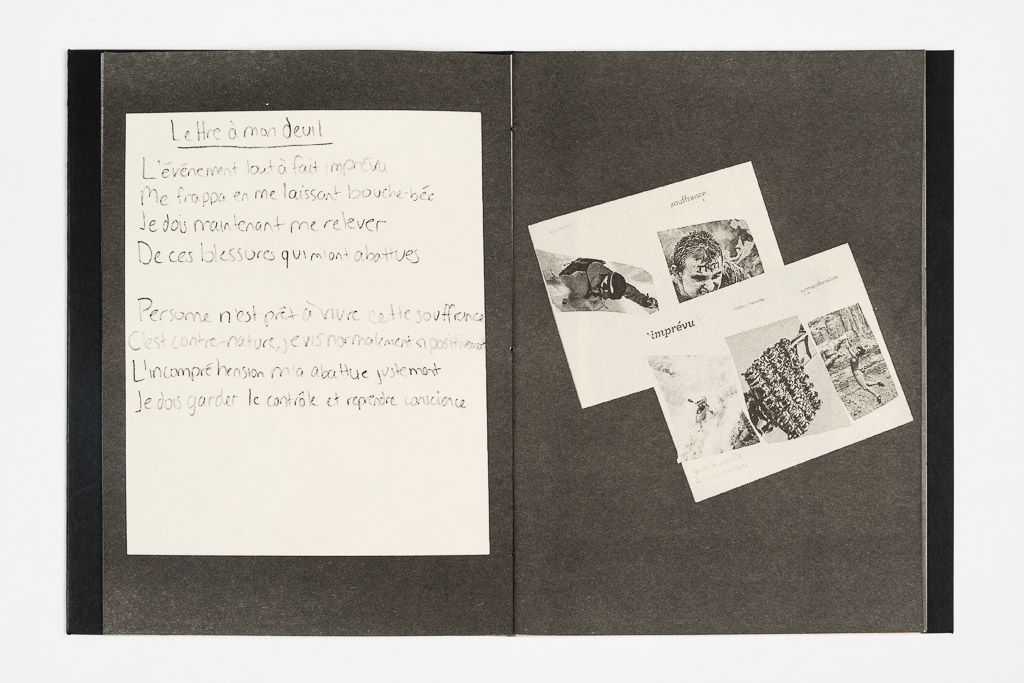 Lettre à mon deuil
L'événement tout à fait imprévu
Me frappa en me laissant bouche-bée
Je dois maintenant me relever
De ces blessures qui m'ont abattues
Personne n'est prêt à vivre cette souffrance
C'est contre-nature, je vis normalement positivement
L'incompréhension m'a abattue justement
Je dois garder le contrôle et reprendre conscience
souffrance
imprévu